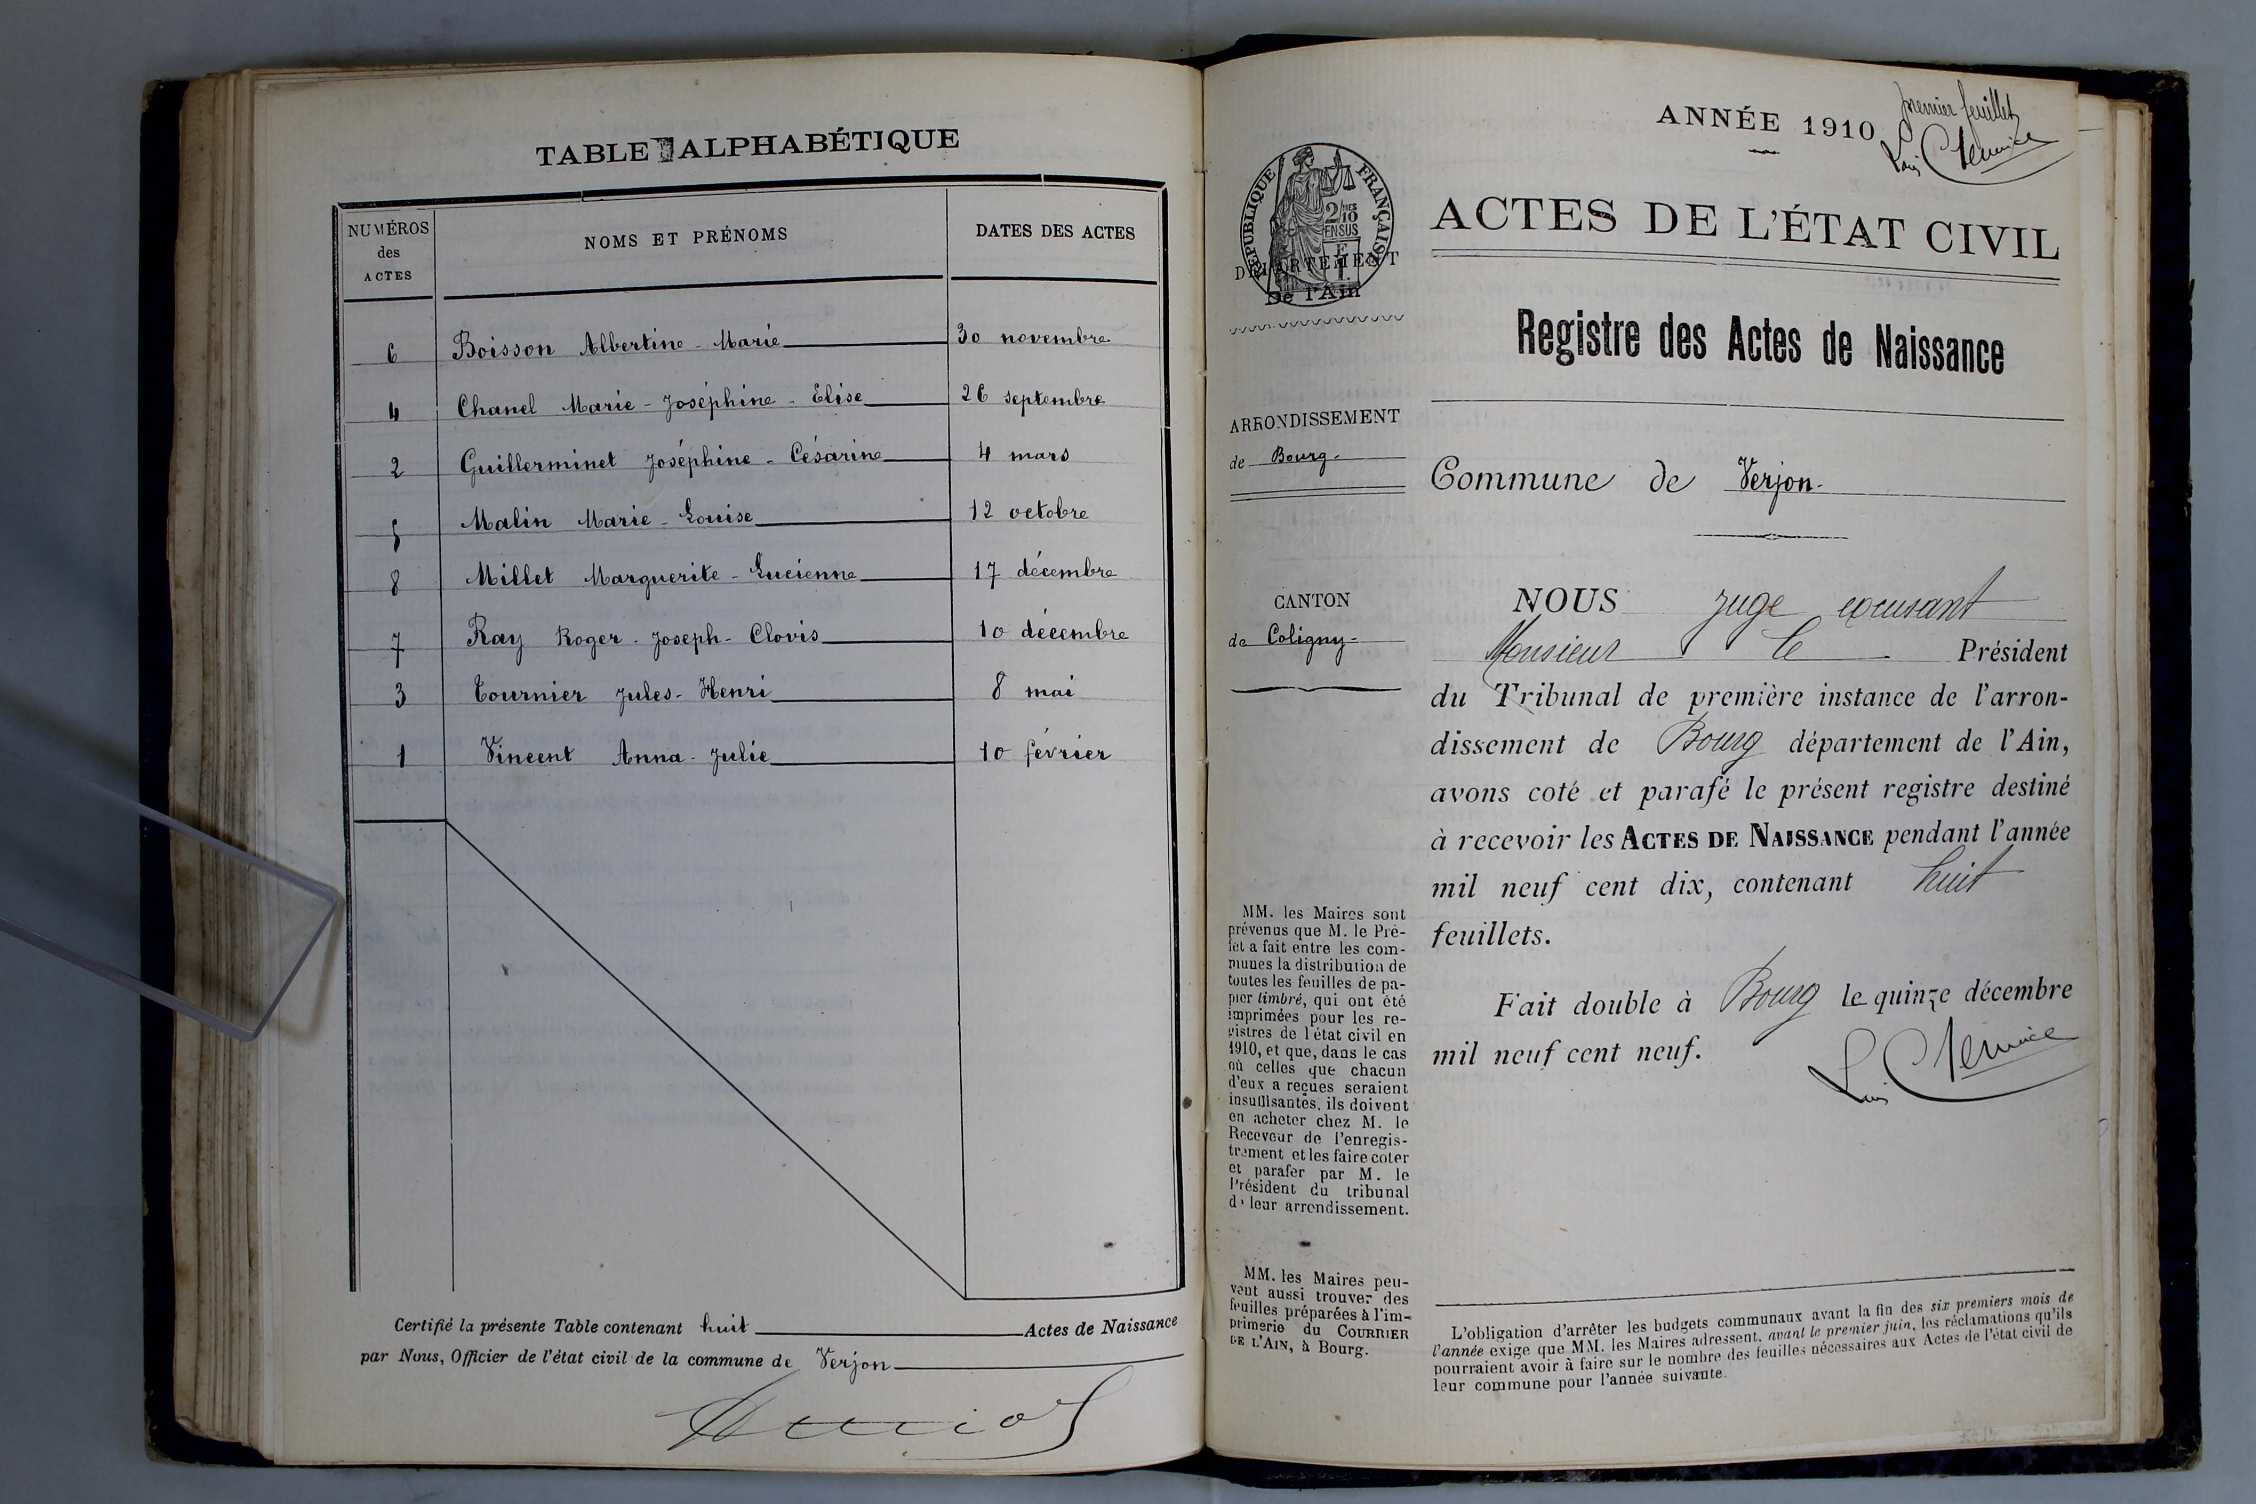 TABLE ALPHABÉTIQUE
NUMÉROS
des
ACTES
NOMS ET PRÉNOMS
DATES DES ACTES
6 Boisson Albertine-Marie 30 novembre
4 Chanel Marie-Joséphine-Elise 26 septembre
2 Guillerminet Joséphine-Césarine 4 mars
5 Malin Marie-Louise 12 octobre
8 Millet Marguerite-Lucienne 17 décembre
7 Ray Roger-Joseph-Clovis 10 décembre
3 Tournier Jules-Henri 8 mai
1 Vincent Anna-Julie 10 février
Certifié la présente Table contenant huit Actes de Naissance
par Nous, Officier de l'état civil de la commune de Verjon
premier feuillet
ANNÉE 1910
RÉPUBLIQUE FRANÇAISE
2/10
EN SUS
DÉPARTEMENT
De l'Ain
ACTES DE L'ÉTAT CIVIL
Registre des Actes de Naissance
ARRONDISSEMENT
de Bourg-
Commune de Verjon-
CANTON
de Coligny-
NOUS juge excusant
Monsieur le Président
du Tribunal de première instance de l'arron-
dissement de Bourg département de l'Ain,
avons coté et parafé le présent registre destiné
à recevoir les ACTES DE NAISSANCE pendant l'année
mil neuf cent dix, contenant huit
feuillets.
Fait double à Bourg le quinze décembre
mil neuf cent neuf.
MM. les Maires sont
prévenus que M. le Pré-
fet a fait entre les com-
munes la distribution de
toutes les feuilles de pa-
pier timbré, qui ont été
imprimées pour les re-
gistres de l'état civil en
1910, et que, dans le cas
où celles que chacun
d'eux a reçues seraient
insuffisantes, ils doivent
en acheter chez M. le
Receveur de l'enregis-
trement et les faire coter
et parafer par M. le
Président du tribunal
de leur arrondissement.
MM. les Maires peu-
vent aussi trouver des
feuilles préparées à l'im-
primerie du COURRIER
DE L'AIN, à Bourg.
L'obligation d'arrêter les budgets communaux avant la fin des six premiers mois de
l'année exige que MM. les Maires adressent, avant le premier juin, les réclamations qu'ils
pourraient avoir à faire sur le nombre des feuilles nécessaires aux Actes de l'état civil de
leur commune pour l'année suivante.